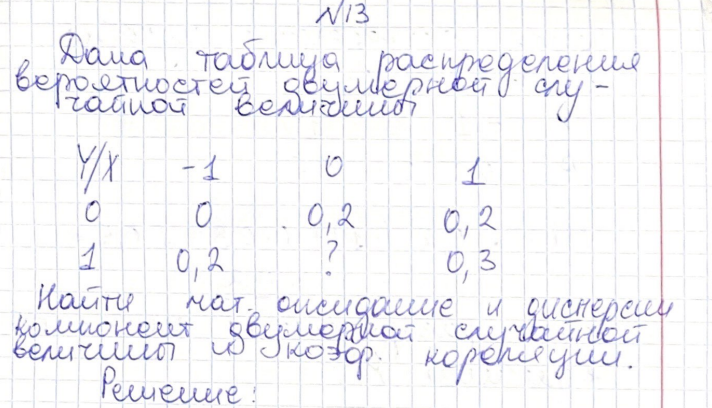 №13
Дана таблица распределения
вероятностей двумерной слу-
чайной величины
Y/X -1 0 1
0 0 0,2 0,2
1 0,2 ? 0,3
Найти мат. ожидание и дисперсии
компонент двумерной случайной
величины и коэф. кореляции.
Решение: